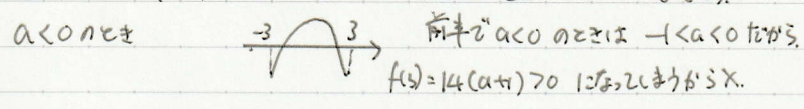 a<0のとき
-3 3
前半でa<0 のときは -1<a<0 だから、
f(3)=14(a+1)>0 になってしまうから×.